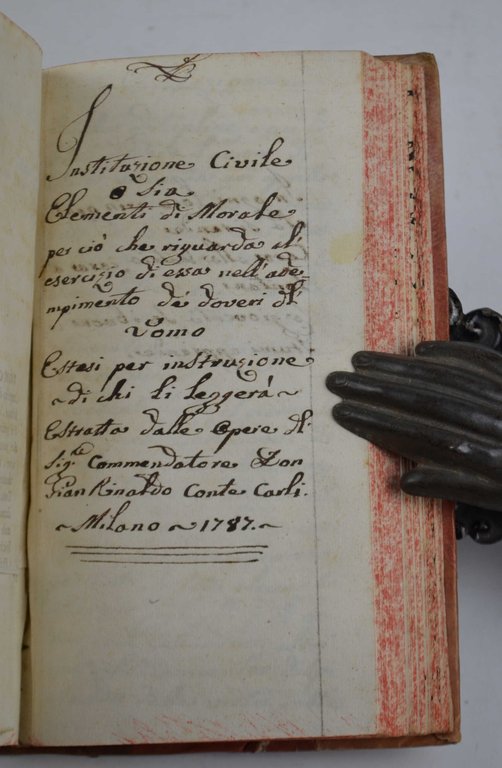 Instituzione Civile
O sia
Elementi di Morale
per ciò che riguarda al'
esercizio di essa nell'ade-
mpimento de' doveri dl'
Uomo
Estesi per instruzione
di chi li leggerà
Estratta dalle Opere dl'
Sig.re Commendatore Don
Gian Rinaldo Conte Carli.
~ Milano ~ 1787. ~